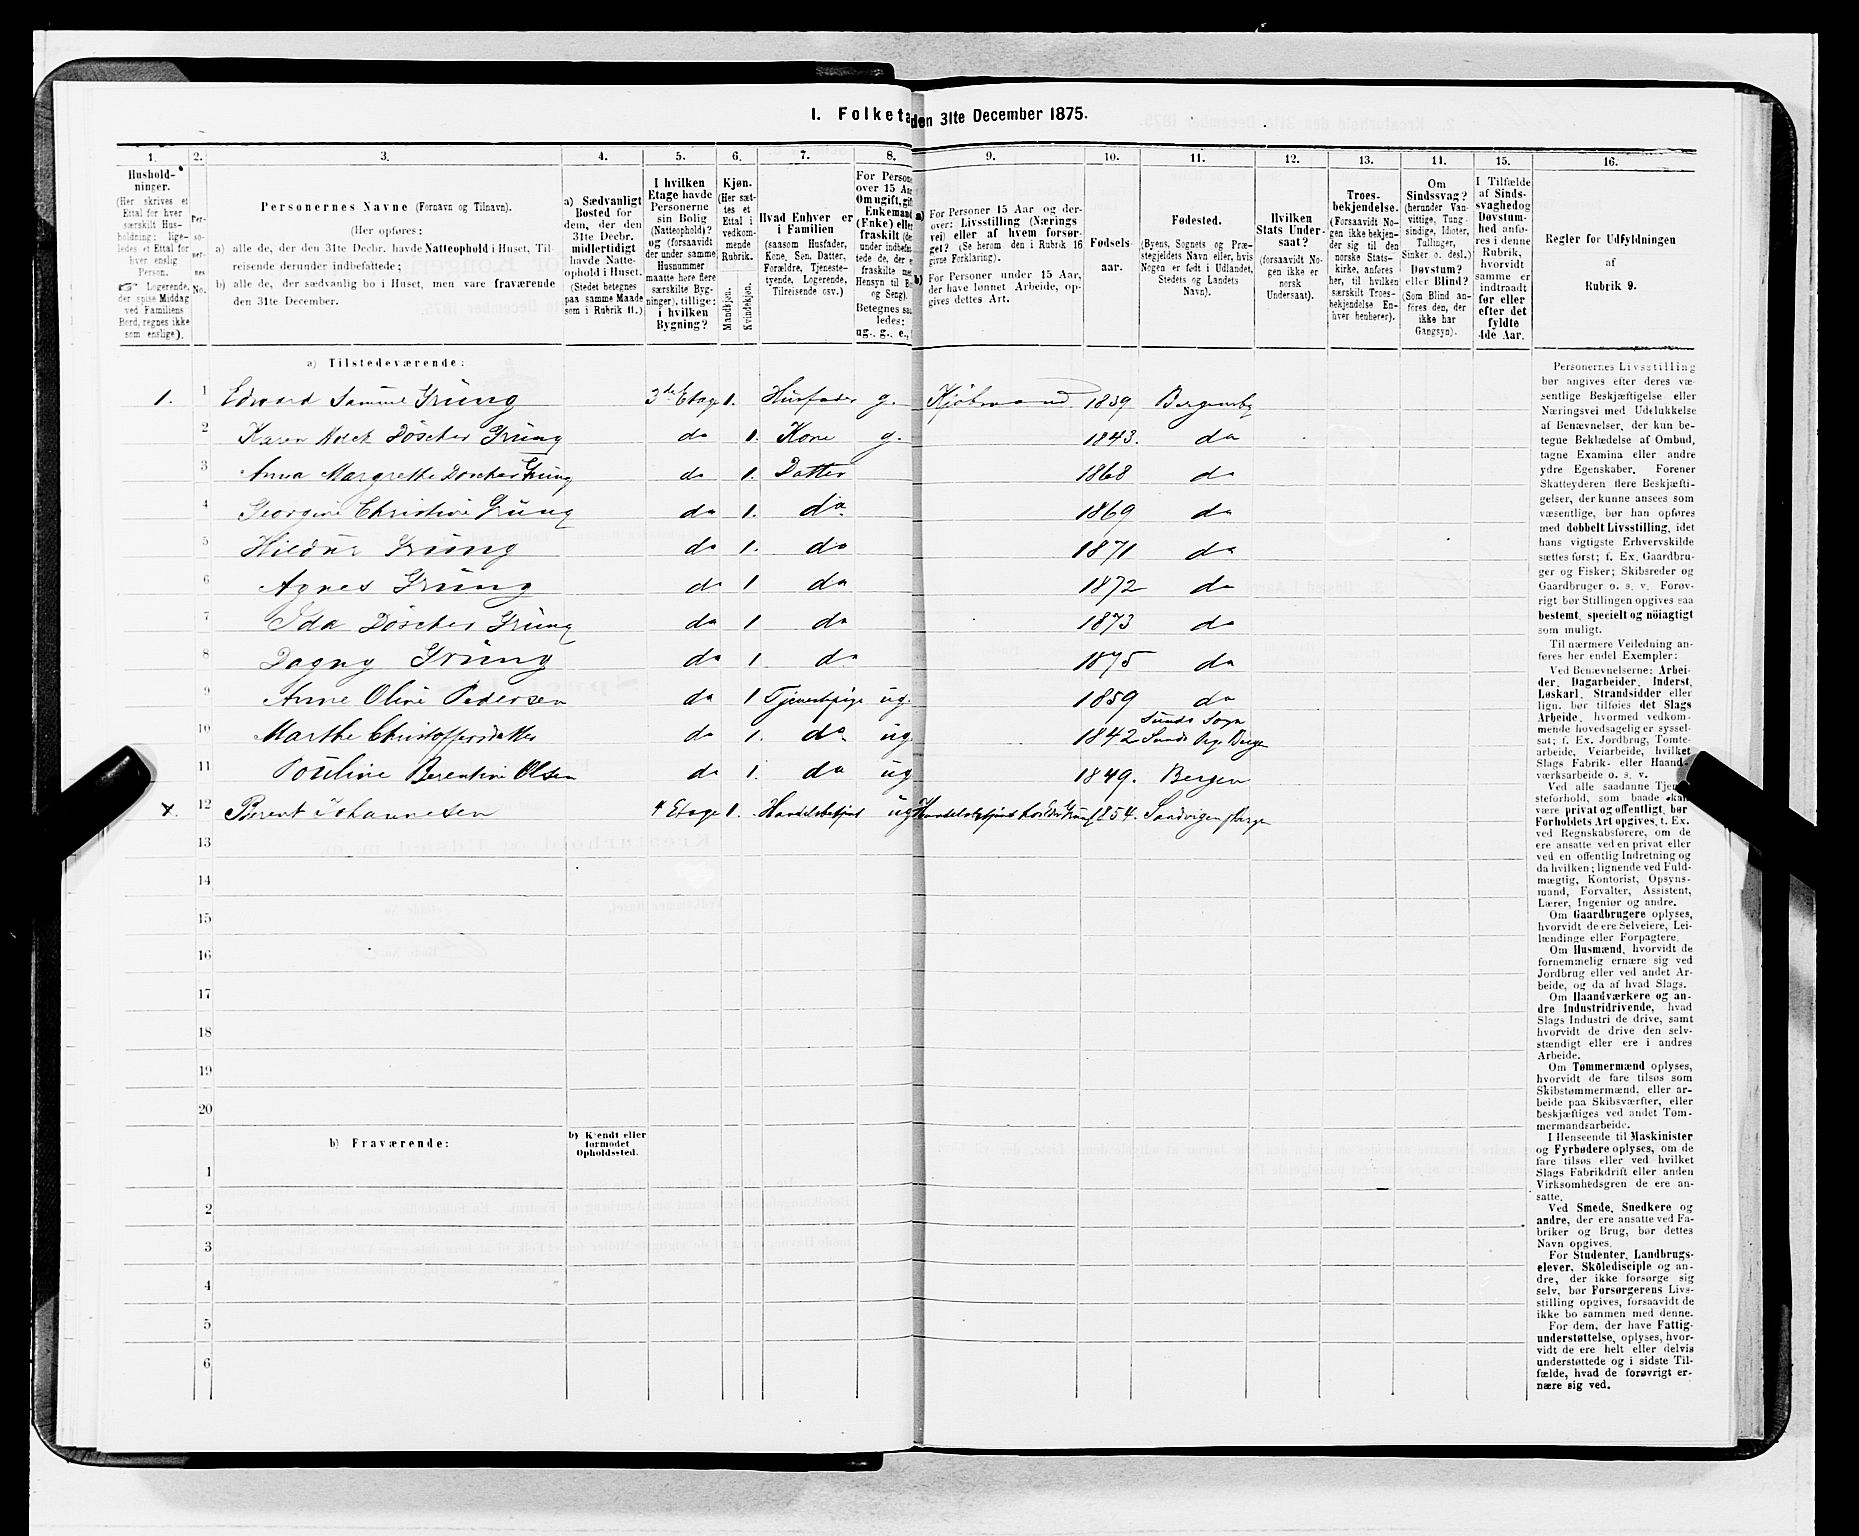 I. Folketa den 31te December 1875.
1. 2. 3. 4. 5. 6. 7. 8. 9. 10. 11. 12. 13. 14. 15. 16.
Hushold-
ninger.
(Her skrives et
Ettal for hver
særskilt Hus-
holdning; lige-
ledes et Ettal for
hver enslig
Person.
Logerende,
der spise Middag
ved Familiens
Bord, regnes ikke
som enslige).
Per-
so-
ner-
nes
No.
Personernes Navne (Fornavn og Tilnavn).
(Her opføres:
a) alle de, der den 31te Decbr. havde Natteophold i Huset, Til-
reisende derunder indbefattede;
b) alle de, der sædvanlig bo i Huset, men vare fraværende
den 31te December.
a) Sædvanligt
Bosted for
dem, der den
31te Decbr.
midlertidigt
havde Natte-
ophold i Huset.
(Stedet betegnes
paa samme Maade
som i Rubrik 11.)
I hvilken
Etage havde
Personerne
sin Bolig
(Natteophold)?
og (forsaavidt
der under samme
Husnummer
maatte høre flere
særskilte Byg-
ninger), tillige:
i hvilken
Bygning?
Kjøn.
(Her sæt-
tes et
Ettal i
vedkom-
mende
Rubrik.
Mandkjøn.
Kvindekjøn.
Hvad Enhver er
i Familien
(saasom Husfader,
Kone, Søn, Datter,
Forældre, Tjeneste-
tyende, Logerende,
Tilreisende osv.)
For Persone
over 15 Aa
Om ugift, gif
Enkemand
(Enke) eller
fraskilt (de
under indbefat
tede de, der e
fraskilte me
Hensyn til Bo
og Seng).
Betegnes saa
ledes:
ug., g., e.,
a) For Personer 15 Aar og der-
over: Livsstilling (Nærings
vei) eller af hvem forsør-
get? (Se herom den i Rubrik 16
givne Forklaring).
b) For Personer under 15 Aar,
der have lønnet Arbeide, op-
gives dettes Art.
Fødsels-
aar.
Fødested.
(Byens, Sognets og Præ-
stegjeldets Navn eller, hvis
Nogen er født i Udlandet,
Stedets og Landets
Navn).
Hvilken
Stats Under-
saat?
(forsaavidt No-
gen ikke er
norsk
Undersaat).
Troes-
bekjendelse.
(Forsaavidt No-
gen ikke bekjen-
der sig til den
norske Stats-
kirke, anføres
her, til hvilken
særskilt Troes-
bekjendelse En-
hver henhører).
Om
Sindssvag?
(herunder Van-
vittige, Tung-
sindige, Idioter,
Tullinger,
Sinker o. desl.)
Døvstum?
eller Blind?
(Som Blind an-
føres den, der
ikke har
Gangsyn).
I Tilfælde
af Sinds-
svaghed og
Døvstum-
hed anfø-
res i denne
Rubrik,
hvorvidt
samme er
indtraadt
før eller
efter det
fyldte
4de Aar.
Regler for Udfyldningen
af
Rubrik 9.
a) Tilstedeværende:
1. 1 Edward Samuel Grüng 3de Etage 1. Husfader g. Kjøbmand 1839 Bergensby
2 Karen Holck Döscher Grüng do 1. Kone g. 1843. do
3 Anna Margrethe Döscher Grüng do 1. Datter 1868 do
4 Georgine Christine Grüng do 1. do 1869 do
5 Hildur Grüng do 1. do 1871 do
6 Agnes Grüng do 1 do 1872 do
7 Ida Döscher Grüng do 1 do 1873 do
8 Dagny Grüng do 1 do 1875 do
9 Anne Oline Pedersen do 1 Tjenestepige ug. 1859 do
10 Marthe Christoffersdatter do 1. do ug 1842 Sunds Sogn
Sunds Bergen
11 Pouline Berentine Olsen do 1. do ug 1849. Bergen
x. 12 Berent Johannesen 4 Etage 1. Handelsbetjent ug Handelsbetjent 1854. Sandvigen Bergen
13
14
15
16
17
18
19
20
b) Fraværende:
b) Kjendt eller
formodet
Opholdssted.
1
2
3
4
5
6
Personernes Livsstilling
bør angives efter deres væ-
sentlige Beskjæftigelse eller
Næringsvei med Udelukkelse
af Benævnelser, der kun be-
tegne Beklædelse af Ombud,
tagne Examina eller andre
ydre Egenskaber. Forener
Skatteyderen flere Beskjæfti-
gelser, der kunne ansees som
væsentlige, bør han opføres
med dobbelt Livsstilling, idet
hans vigtigste Erhvervskilde
sættes først; f. Ex. Gaardbru-
ger og Fisker; Skibsreder og
Gaardbruger o. s. v. Forøv-
rigt bør Stillingen opgives saa
bestemt, specielt og nöiagtigt
som muligt.
Til nærmere Veiledning an-
føres her endel Exempler:
Ved Benævnelserne: Arbei-
der, Dagarbeider, Inderst,
Løskarl, Strandsidder eller
lign. bør tilføies det Slags
Arbeide, hvormed vedkom-
mende hovedsagelig er syssel-
sat; f. Ex. Jordbrug, Tomte-
arbeide, Veiarbeide, hvilket
Slags Fabrik- eller Haand-
værksarbeide o. s. v.
Ved alle saadanne Tjene-
steforhold, som baade kan
være privat og offentligt, bør
Forholdets Art opgives, t. Ex.
ved Regnskabsførere, om de
ere ansatte ved en privat eller
ved en offentlig Indretning og
da hvilken; lignende ved Fuld-
mægtig, Kontorist, Opsyns-
mand, Forvalter, Assistent,
Lærer, Ingeniør og andre.
Om Gaardbrugere oplyses,
hvorvidt de ere Selveiere, Lei-
lændinge eller Forpagtere.
Om Husmænd, hvorvidt de
fornemmelig ernære sig ved
Jordbrug eller ved andet Ar-
beide, og da af hvad Slags.
Om Haandværkere og an-
dre Industridrivende, hvad
Slags Industri de drive, samt
hvorvidt de drive den selv-
stændigt eller ere i andres
Arbeide.
Om Tømmermænd oplyses,
hvorvidt de fare tilsøs som
Skibstømmermænd, eller ar-
beide paa Skibsværfter, eller
beskjæftiges ved andet Tøm-
mermandsarbeide.
I Henseende til Maskinister
og Fyrbødere oplyses, om de
fare tilsøs eller ved hvilket
Slags Fabrikdrift eller anden
Virksomhedsgren de ere an-
satte.
Ved Smede, Snedkere og
andre, der ere ansatte ved Fa-
briker og Brug, bør dettes
Navn opgives.
For Studenter, Landbrugs-
elever, Skoledisciple og an-
dre, der ikke forsørge sig
selv, bør Forsørgerens Livs-
stilling opgives, forsaavidt de
ikke bo sammen med denne.
For dem, der have Fattig-
understøttelse, oplyses, hvor-
vidt de ere helt eller delvis
understøttede og i sidste Til-
fælde, hvad de forøvrigt er-
nære sig ved.